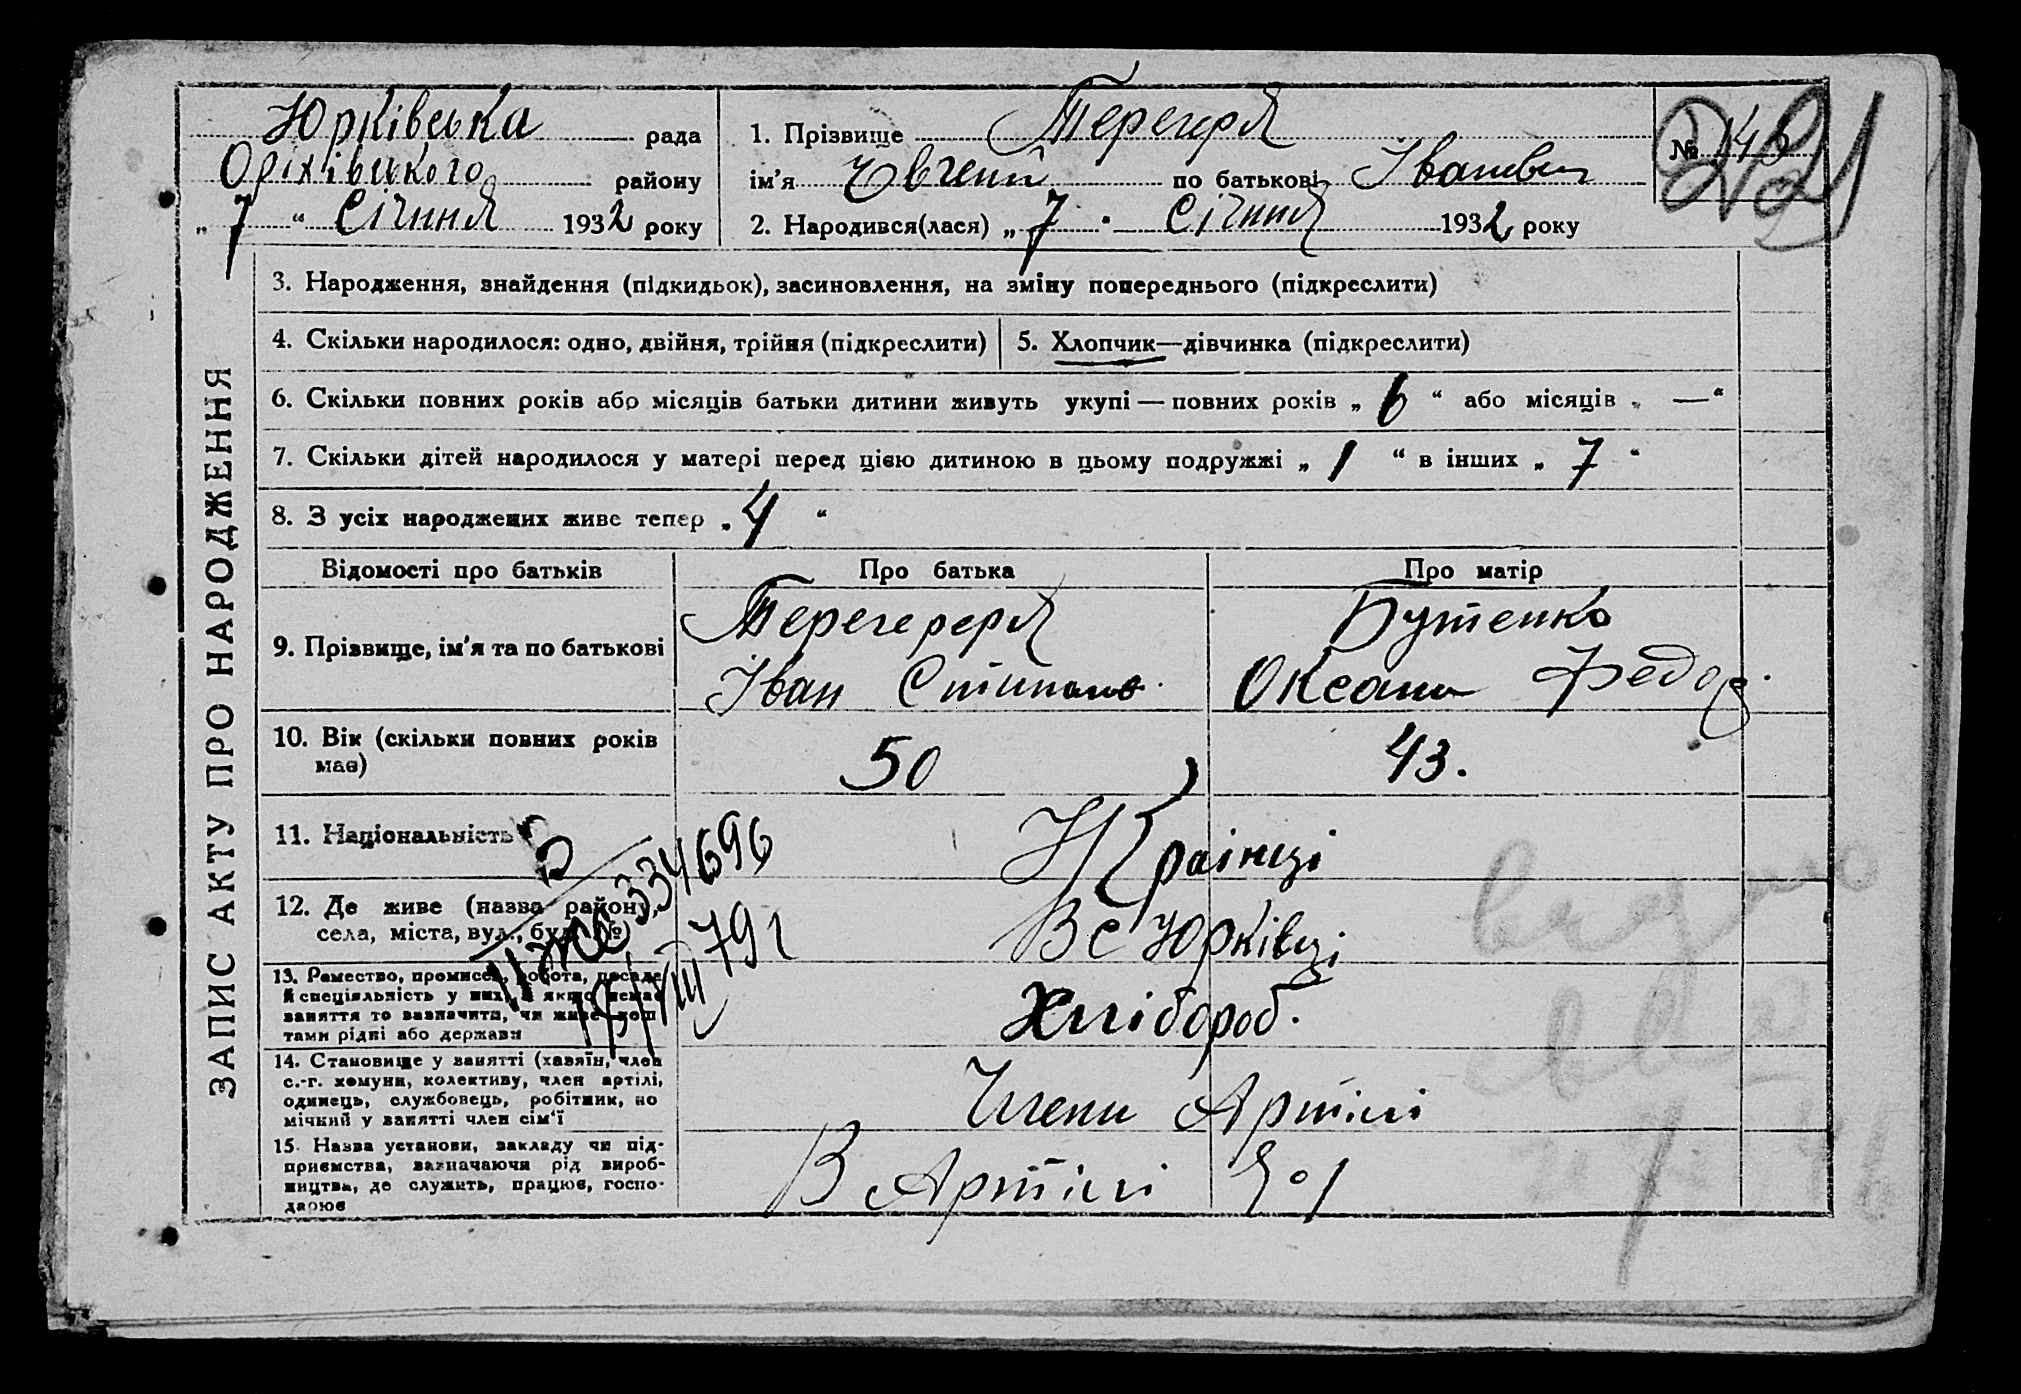 Юрківська рада
Оріхівського району
„ 7 “ Січння 1932 року
1. Прізвище Терегеря
ім'я Євгений по батькові Іванович
2. Народився(лася) „ 7 . Січння 1932 року
№ 146
221
ЗАПИС АКТУ ПРО НАРОДЖЕННЯ
3. Народження, знайдення (підкидьок), засиновлення, на зміну попереднього (підкреслити)
4. Скільки народилося: одно, двійня, трійня (підкреслити)
5. Хлопчик—дівчинка (підкреслити)
6. Скільки повних років або місяців батьки дитини живуть укупі — повних років „ 6 “ або місяців „ — “
7. Скільки дітей народилося у матері перед цією дитиною в цьому подружжі „ 1 “ в інших „ 7 “
8. З усіх народжених живе тепер „ 4 “
Відомості про батьків Про батька Про матір
9. Прізвище, ім'я та по батькові
Терегеря
Іван Степанов.
Бутенко
Оксана Федор.
10. Вік (скільки повних років має)
50
43.
11. Національність
Українці
12. Де живе (назва району, села, міста, вул., буд. №)
В с Юрківці
13. Ремество, промисел, робота, посада
й спеціяльність у них, а якщо немає
заняття то зазначити, чи живе кош
тами рідні або держави
Хлібороб.
14. Становище у занятті (хазяїн, член
с.-г. комуни, колективу, член артілі,
одинець, службовець, робітник, по
мічний у занятті член сім'ї
Члени Артілі
15. Назва установи, закладу чи під-
приємства, вазначаючи рід вироб-
ництва, де служить, працює, госпо-
дарює
В Артілі
334696
VIII 79 г